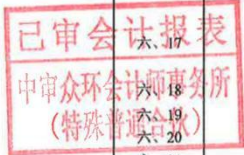 已审会计报表
六、17
中审众环会计师事务所
六、18
六、19
(特殊普通合伙)
六、20